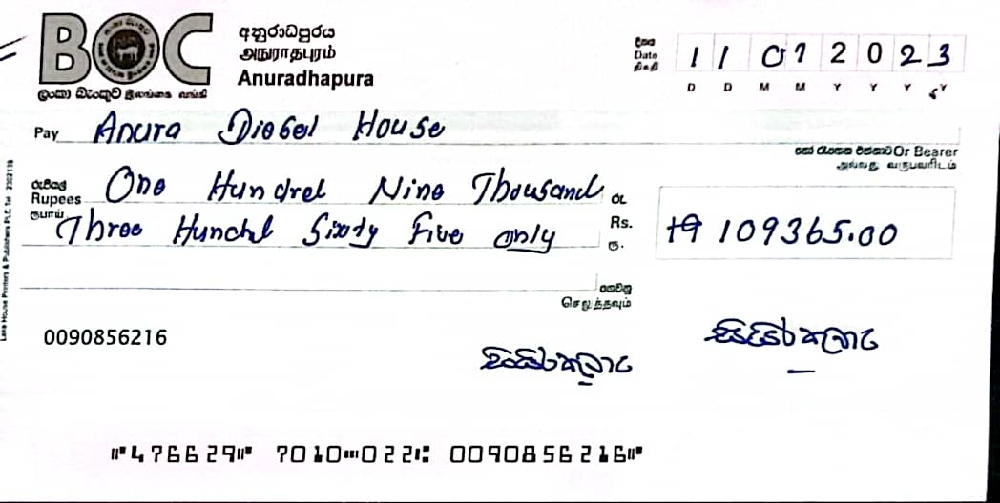 BOC
ලංකා බැංකුව இலங்கை வங்கி
අනුරාධපුරය
அநுராதபுரம்
Anuradhapura
දිනය
Date
திகதி
11 01 2023
D D M M Y Y Y Y
Pay Anura Diesel House
හෝ රැගෙන එන්නාට Or Bearer
அல்லது வருபவரிடம்
රුපියල්
Rupees One Hundred Nine Thousand
ரூபாய் Three Hundred Sixty Five only
රු.
Rs. 109365.00
ரூ.
ගෙවනු
செலுத்தவும்
Lake House Printers & Publishers PLC
0090856216
⑈476629⑈ 7010⑉022⑆ 0090856216⑈